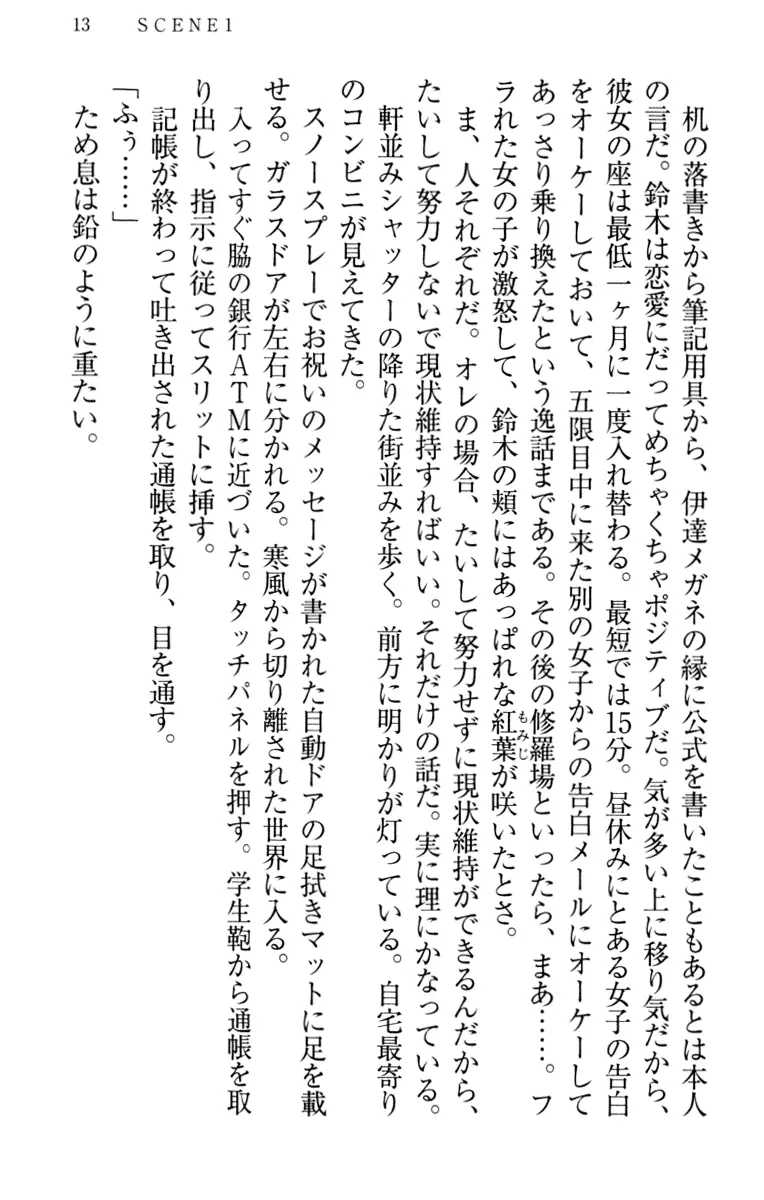 13　SCENE1
　机の落書きから筆記用具から、伊達メガネの縁に公式を書いたこともあるとは本人
の言だ。鈴木は恋愛にだってめちゃくちゃポジティブだ。気が多い上に移り気だから、
彼女の座は最低一ヶ月に一度入れ替わる。最短では15分。昼休みにとある女子の告白
をオーケーしておいて、五限目中に来た別の女子からの告白メールにオーケーして
あっさり乗り換えたという逸話まである。その後の修羅場といったら、まあ……。フ
ラれた女の子が激怒して、鈴木の頬にはあっぱれな紅葉が咲いたとさ。
もみじ
　ま、人それぞれだ。オレの場合、たいして努力せずに現状維持ができるんだから、
たいして努力しないで現状維持すればいい。それだけの話だ。実に理にかなっている。
　軒並みシャッターの降りた街並みを歩く。前方に明かりが灯っている。自宅最寄り
のコンビニが見えてきた。
　スノースプレーでお祝いのメッセージが書かれた自動ドアの足拭きマットに足を載
せる。ガラスドアが左右に分かれる。寒風から切り離された世界に入る。
　入ってすぐ脇の銀行ＡＴＭに近づいた。タッチパネルを押す。学生鞄から通帳を取
り出し、指示に従ってスリットに挿す。
　記帳が終わって吐き出された通帳を取り、目を通す。
「ふぅ……」
　ため息は鉛のように重たい。